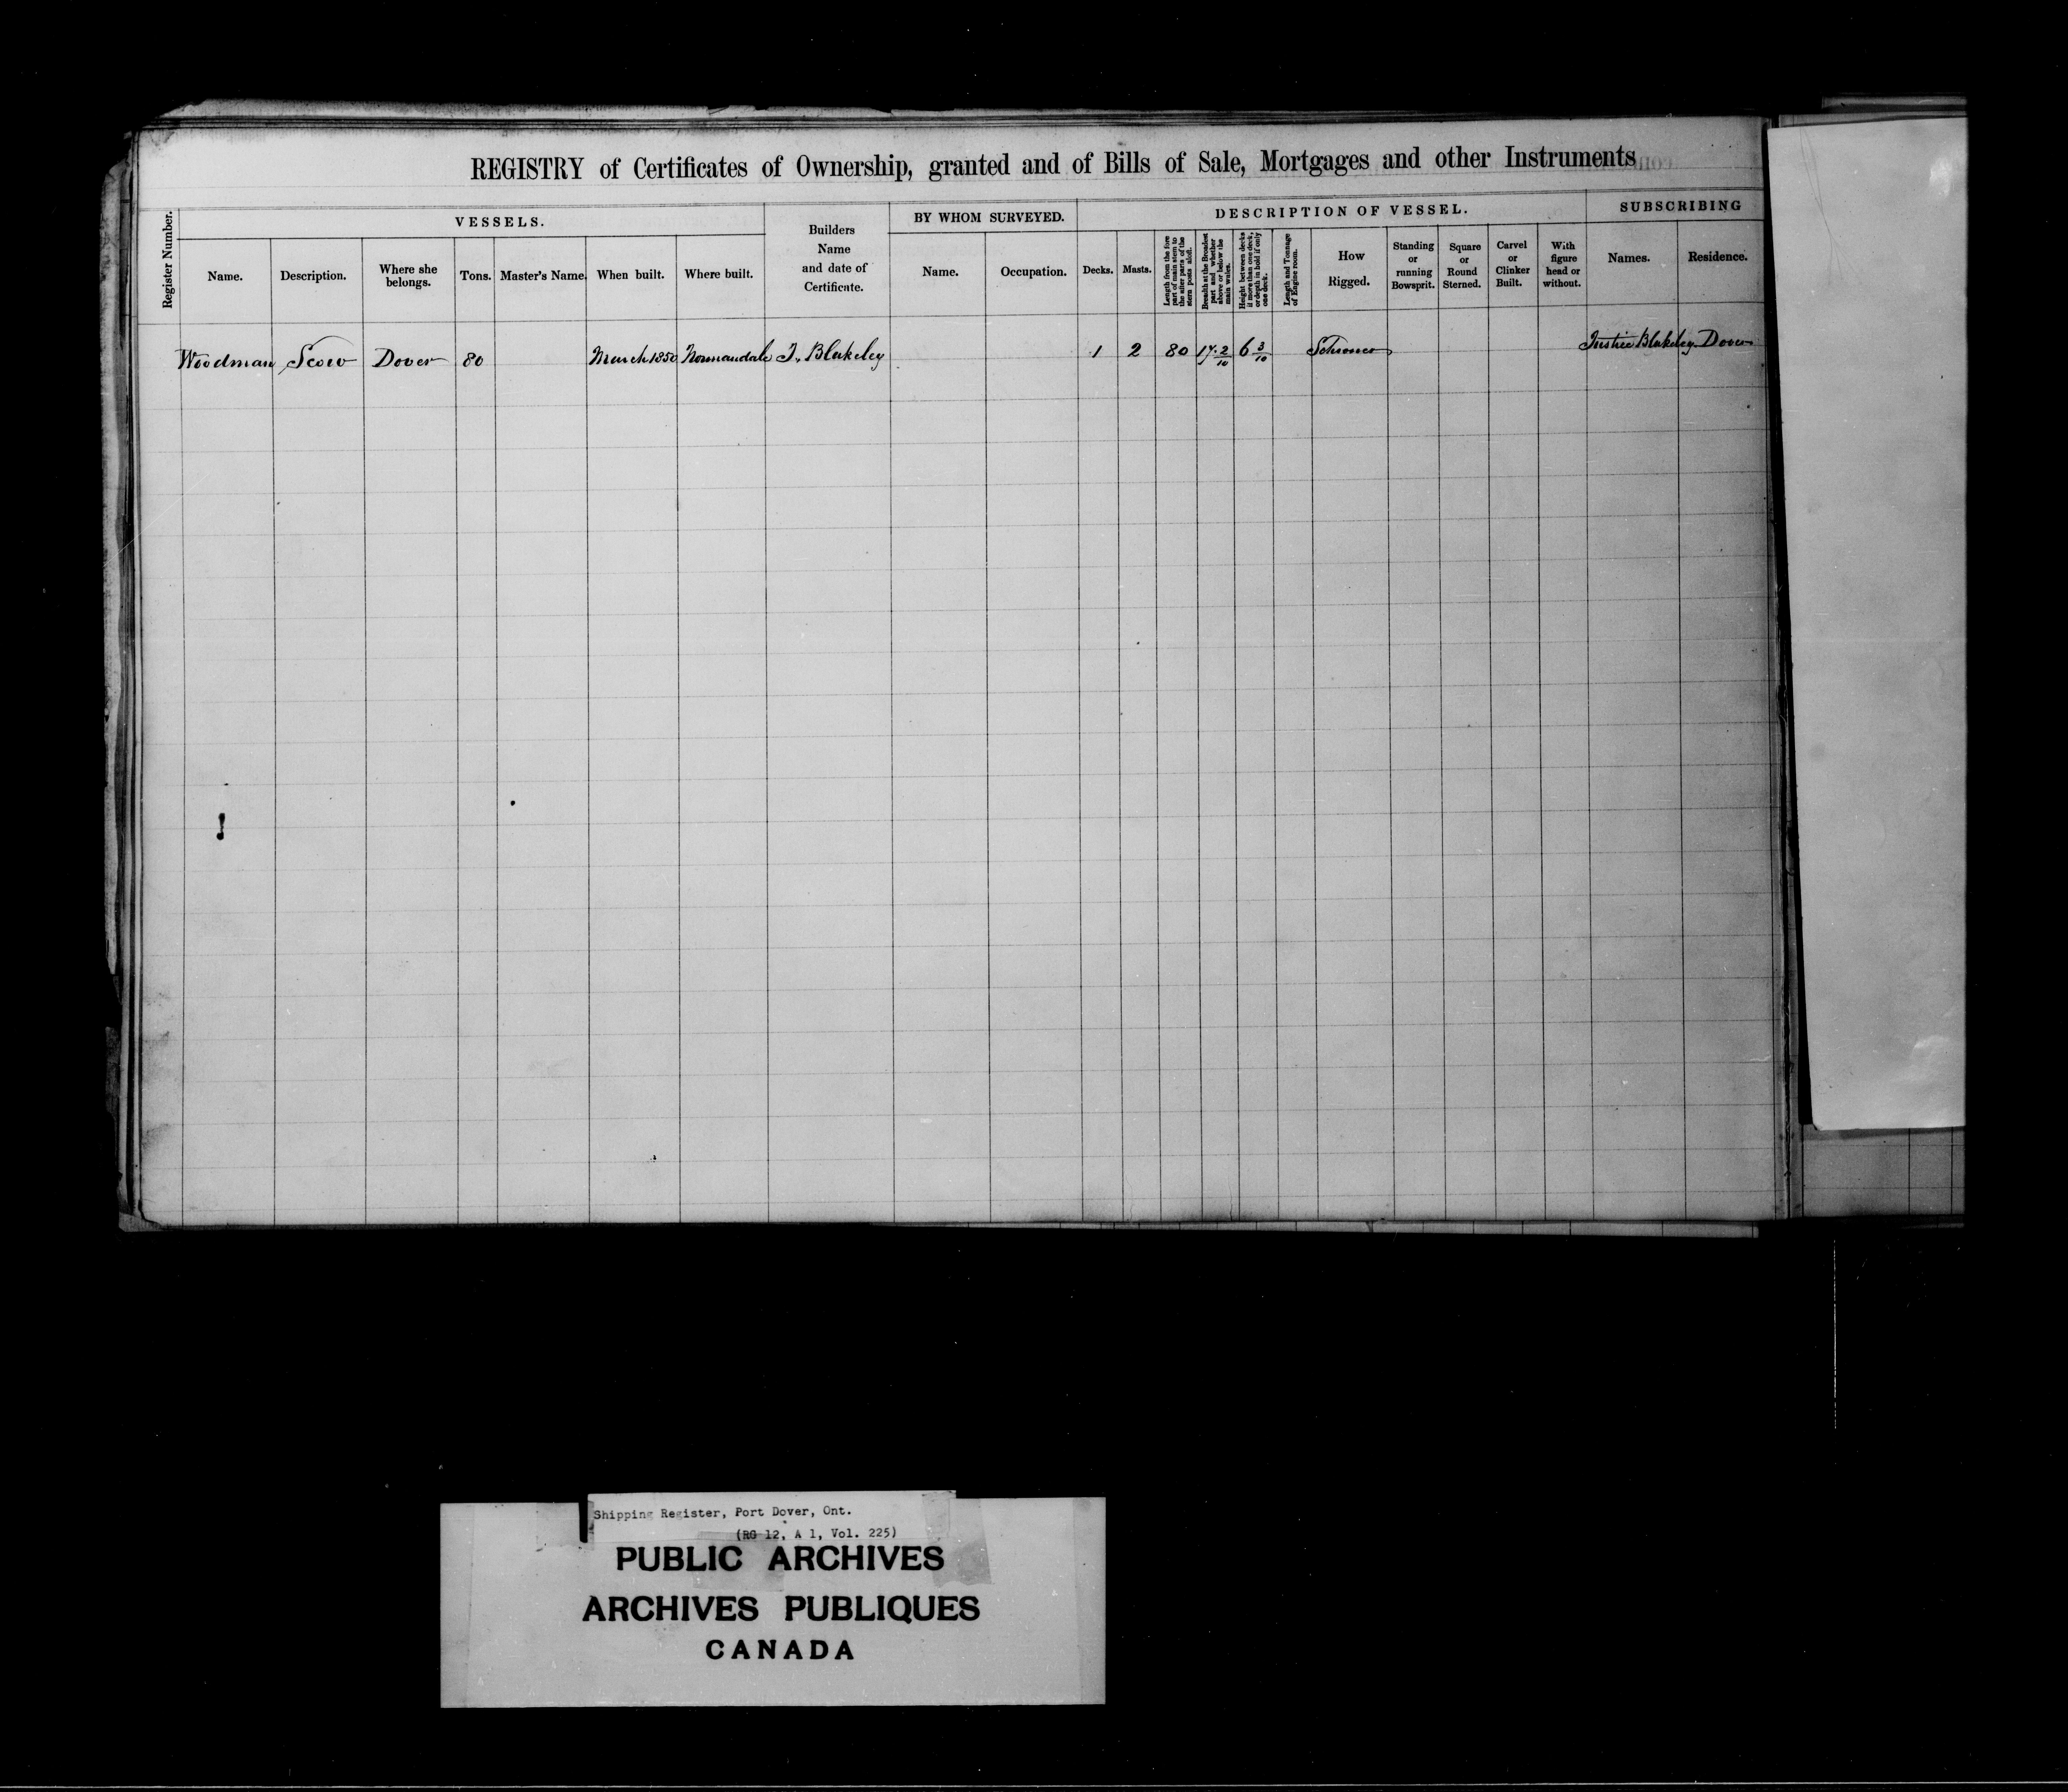 REGISTRY of Certificates of Ownership, granted and of Bills of Sale, Mortgages and other Instruments
Register Number.
VESSELS.
Name.
Description.
Where she
belongs.
Tons.
Master's Name.
When built.
Where built.
Builders
Name
and date of
Certificate.
BY WHOM SURVEYED.
Name.
Occupation.
DESCRIPTION OF VESSEL.
Decks.
Masts.
Length from the fore
part of main stem to
the after parts of the
stern posts aloft.
Breadth at the Broadest
part and whether
above or below the
main wales.
Height between decks
if more than one deck,
or depth in hold if only
one deck.
Length and Tonnage
of Engine room.
How
Rigged.
Standing
or
running
Bowsprit.
Square
or
Round
Sterned.
Carvel
or
Clinker
Built.
With
figure
head or
without.
SUBSCRIBING
Names.
Residence.
Woodman Scow Dover 80 March 1850 Normandale J. Blakeley 1 2 80 17 2/10 6 3/10 Schooner Justice Blakeley Dover
Shipping Register, Port Dover, Ont.
(RG 12, A 1, Vol. 225)
PUBLIC ARCHIVES
ARCHIVES PUBLIQUES
CANADA